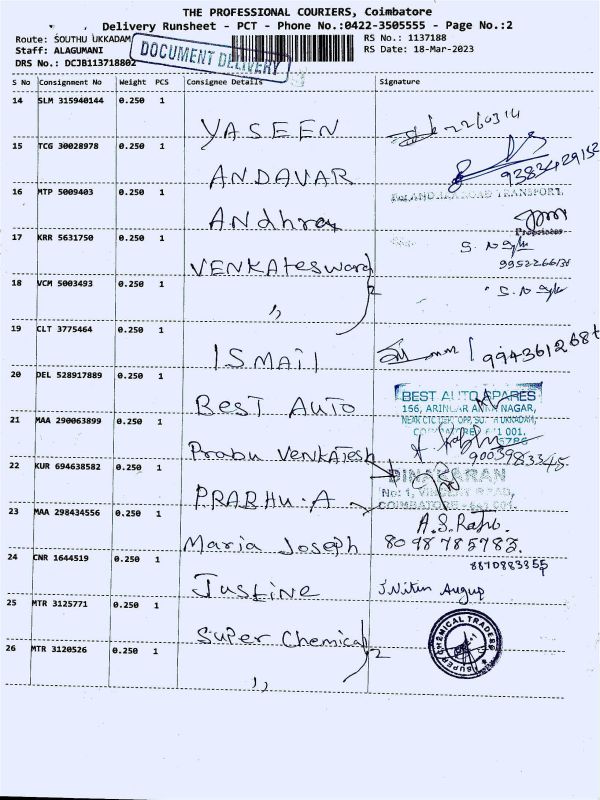 THE PROFESSIONAL COURIERS, Coimbatore
Delivery Runsheet - PCT - Phone No.:0422-3505555 - Page No.:2
Route: SOUTHU UKKADAM
RS No.: 1137188
Staff: ALAGUMANI
RS Date: 18-Mar-2023
DRS No.: DCJB113718802
DOCUMENT DELIVERY
S No Consignment No Weight PCS Consignee Details Signature
14 SLM 315940144 0.250 1
YASEEN
15 TCG 30028978 0.250 1
ANDAVAR 9383429152
16 MTP 5009403 0.250 1
TRANSPORT
ANdhra
Proprietor
17 KRR 5631750 0.250 1
VENKAtesward
18 VCM 5003493 0.250 1
,, 2
19 CLT 3775464 0.250 1
ISMAil
20 DEL 528917889 0.250 1
BEST AUTO SPARES
156, ARINGAR ANNA NAGAR,
BesT AUTO
21 MAA 290063899 0.250 1
Prabu VENKATESH 9003983345
22 KUR 694638582 0.250 1
DINAKARAN
PRABHU.A
COIMBATORE
23 MAA 298434556 0.250 1
Maria Joseph 8098785783
24 CNR 1644519 0.250 1
8870883355
JustiNe
25 MTR 3125771 0.250 1
SUPER CHEMICAL TRADERS
SUPer Chemical
26 MTR 3120526 0.250 1
,, 2